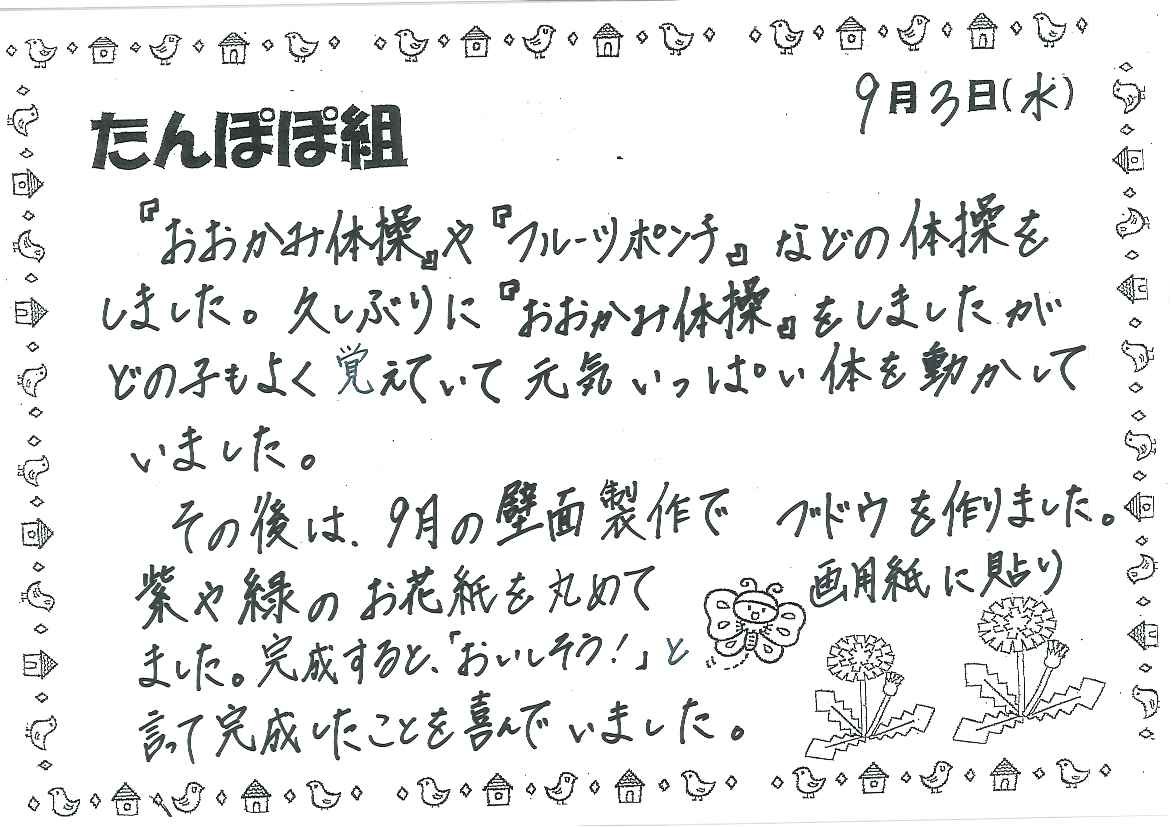 9月3日(水)
たんぽぽ組
『おおかみ体操』や『フルーツポンチ』などの体操を
しました。久しぶりに『おおかみ体操』をしましたが
どの子もよく覚えていて元気いっぱい体を動かして
いました。
その後は、9月の壁面製作でブドウを作りました。
紫や緑のお花紙を丸めて 画用紙に貼り
ました。完成すると、「おいしそう!」と
言って完成したことを喜んでいました。